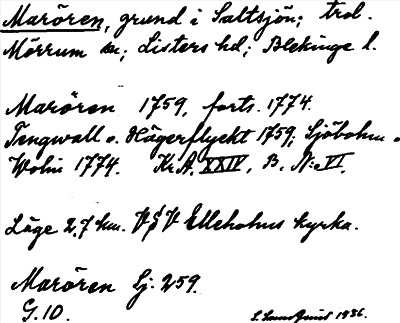 Marören, grund i Saltsjön; trol.
Mörrum sn; Listers hd; Blekinge l.
Marören 1759, forts. 1774.
Tengwall o. Hägerflycht 1759, Sjöbohm o
Wolin 1774. Kr.A. XXIV, B. N:o VI.
Läge 2,7 km. V§V Elleholms kyrka.
Marören Sj. 259.
G.10. 1936.